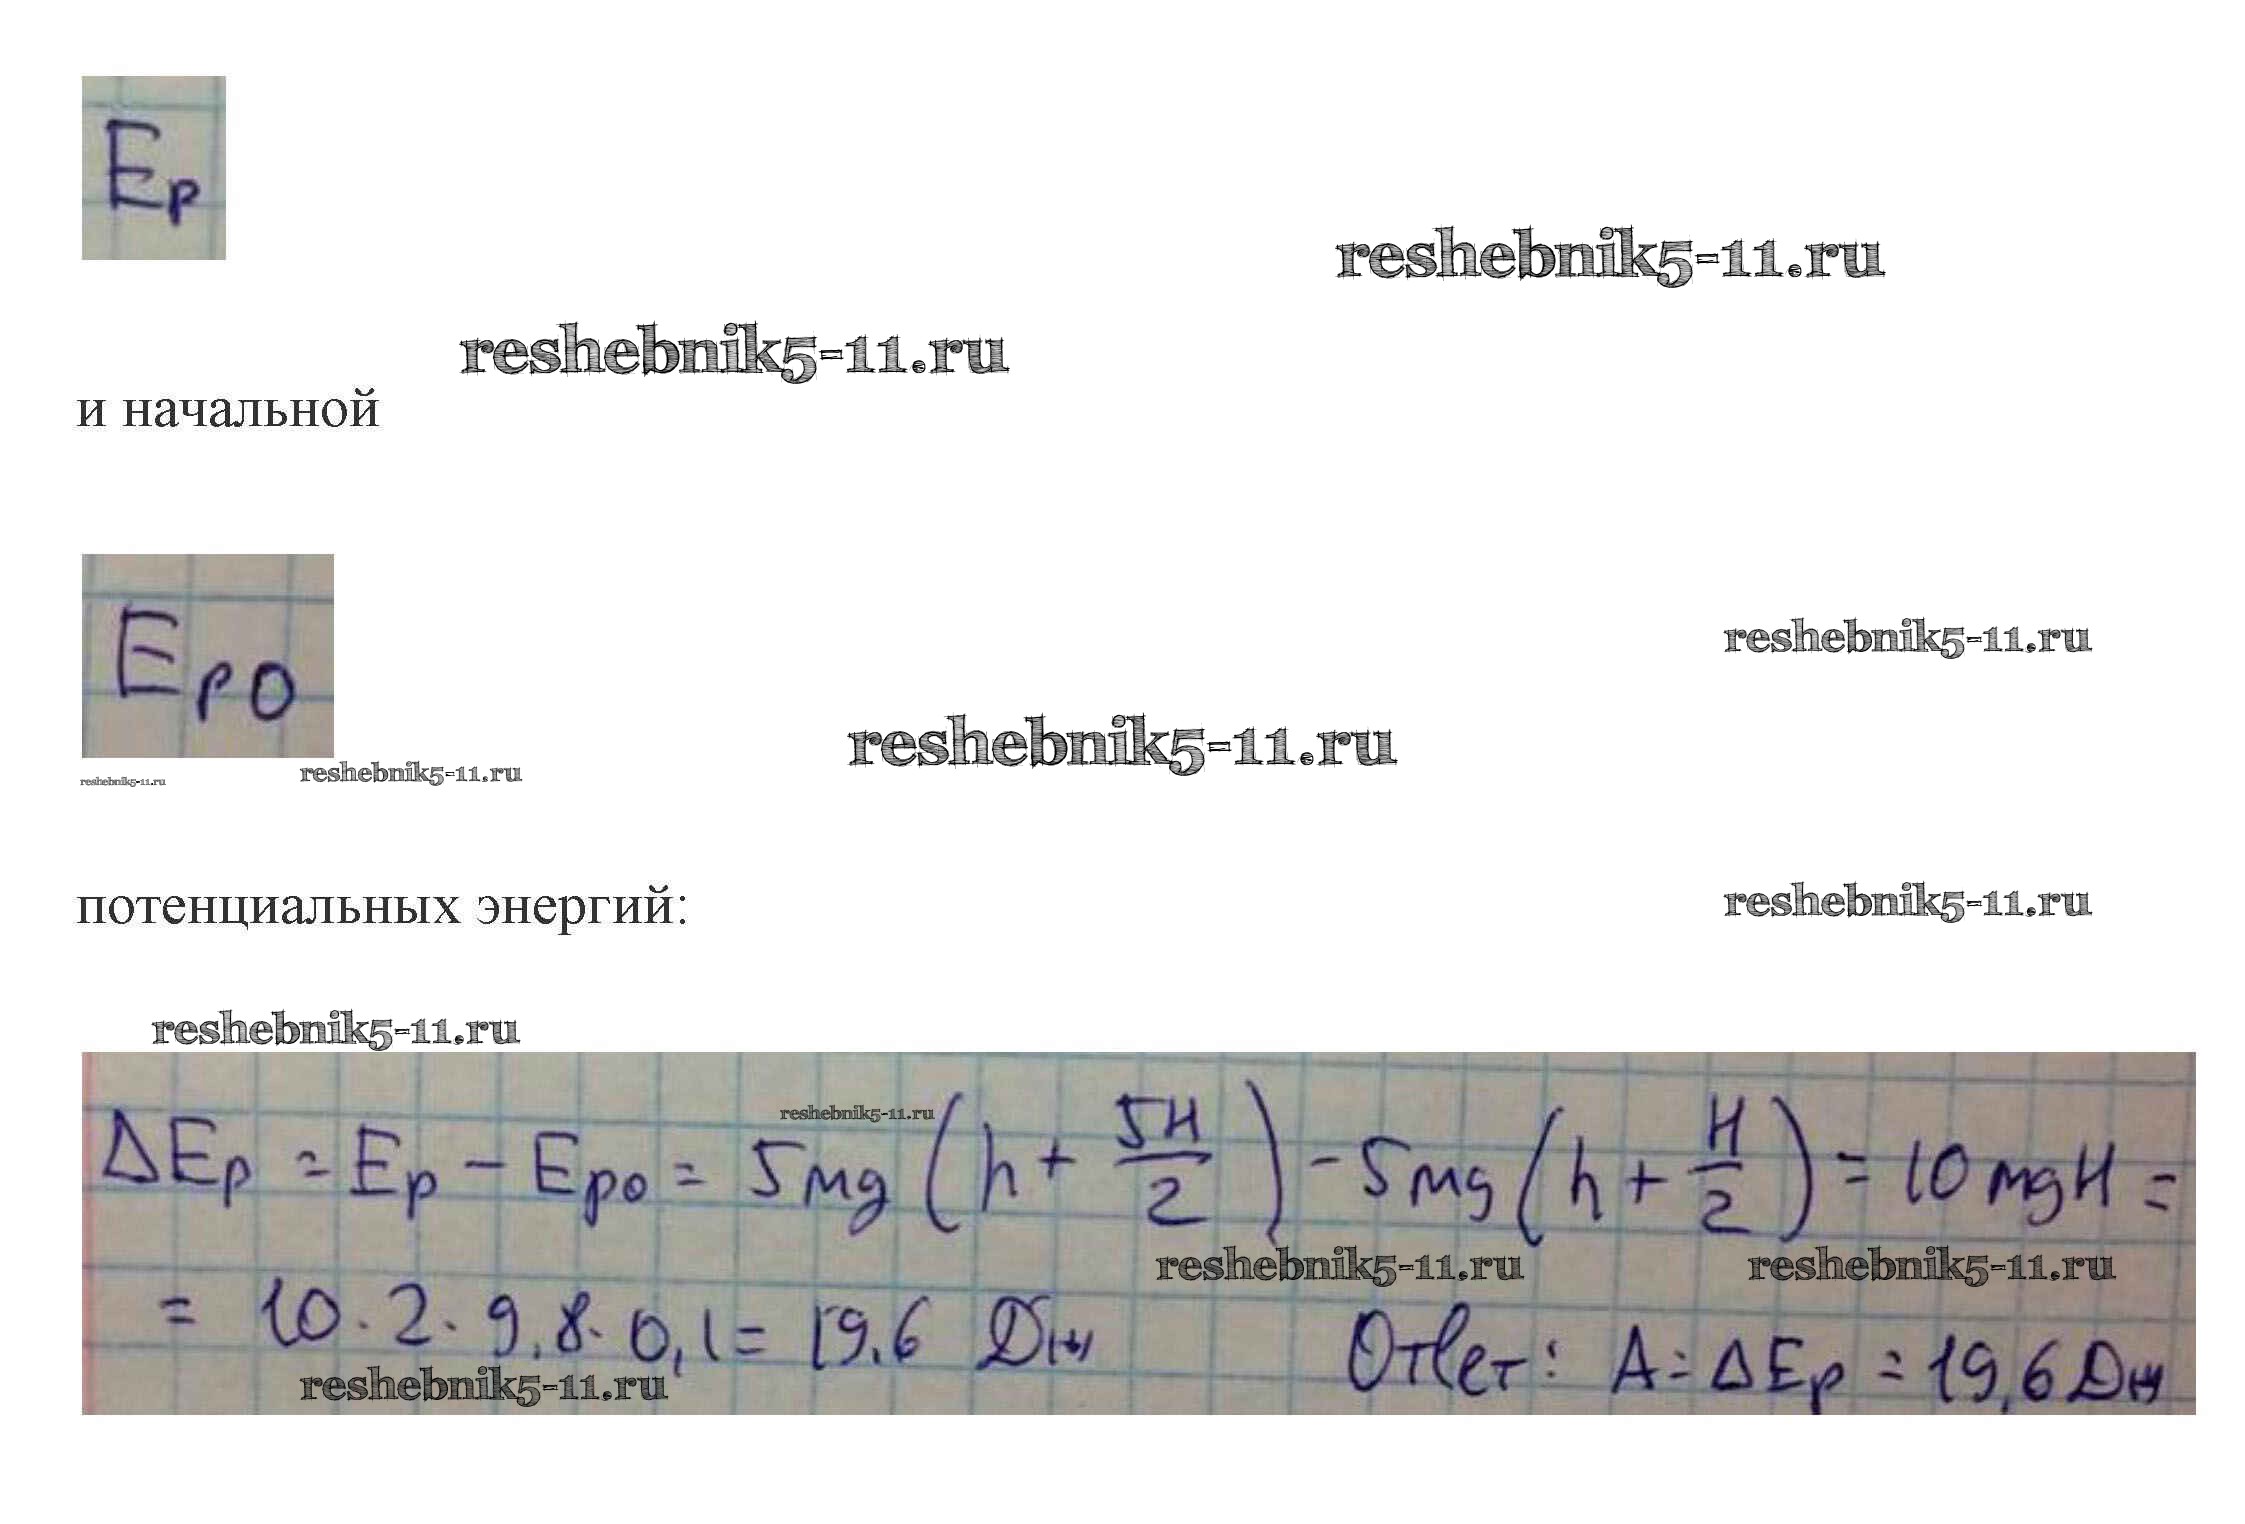 Eₚ
reshebnik5-11.ru
reshebnik5-11.ru
и начальной
Eₚ₀
reshebnik5-11.ru
reshebnik5-11.ru
reshebnik5-11.ru
reshebnik5-11.ru
потенциальных энергий:
reshebnik5-11.ru
reshebnik5-11.ru
reshebnik5-11.ru
ΔEₚ = Eₚ − Eₚ₀ = 5mg(h + 5H/2) − 5mg(h + H/2) = 10mgH =
reshebnik5-11.ru
reshebnik5-11.ru
= 10 · 2 · 9,8 · 0,1 = 19,6 Дж Ответ: A = ΔEₚ = 19,6 Дж
reshebnik5-11.ru